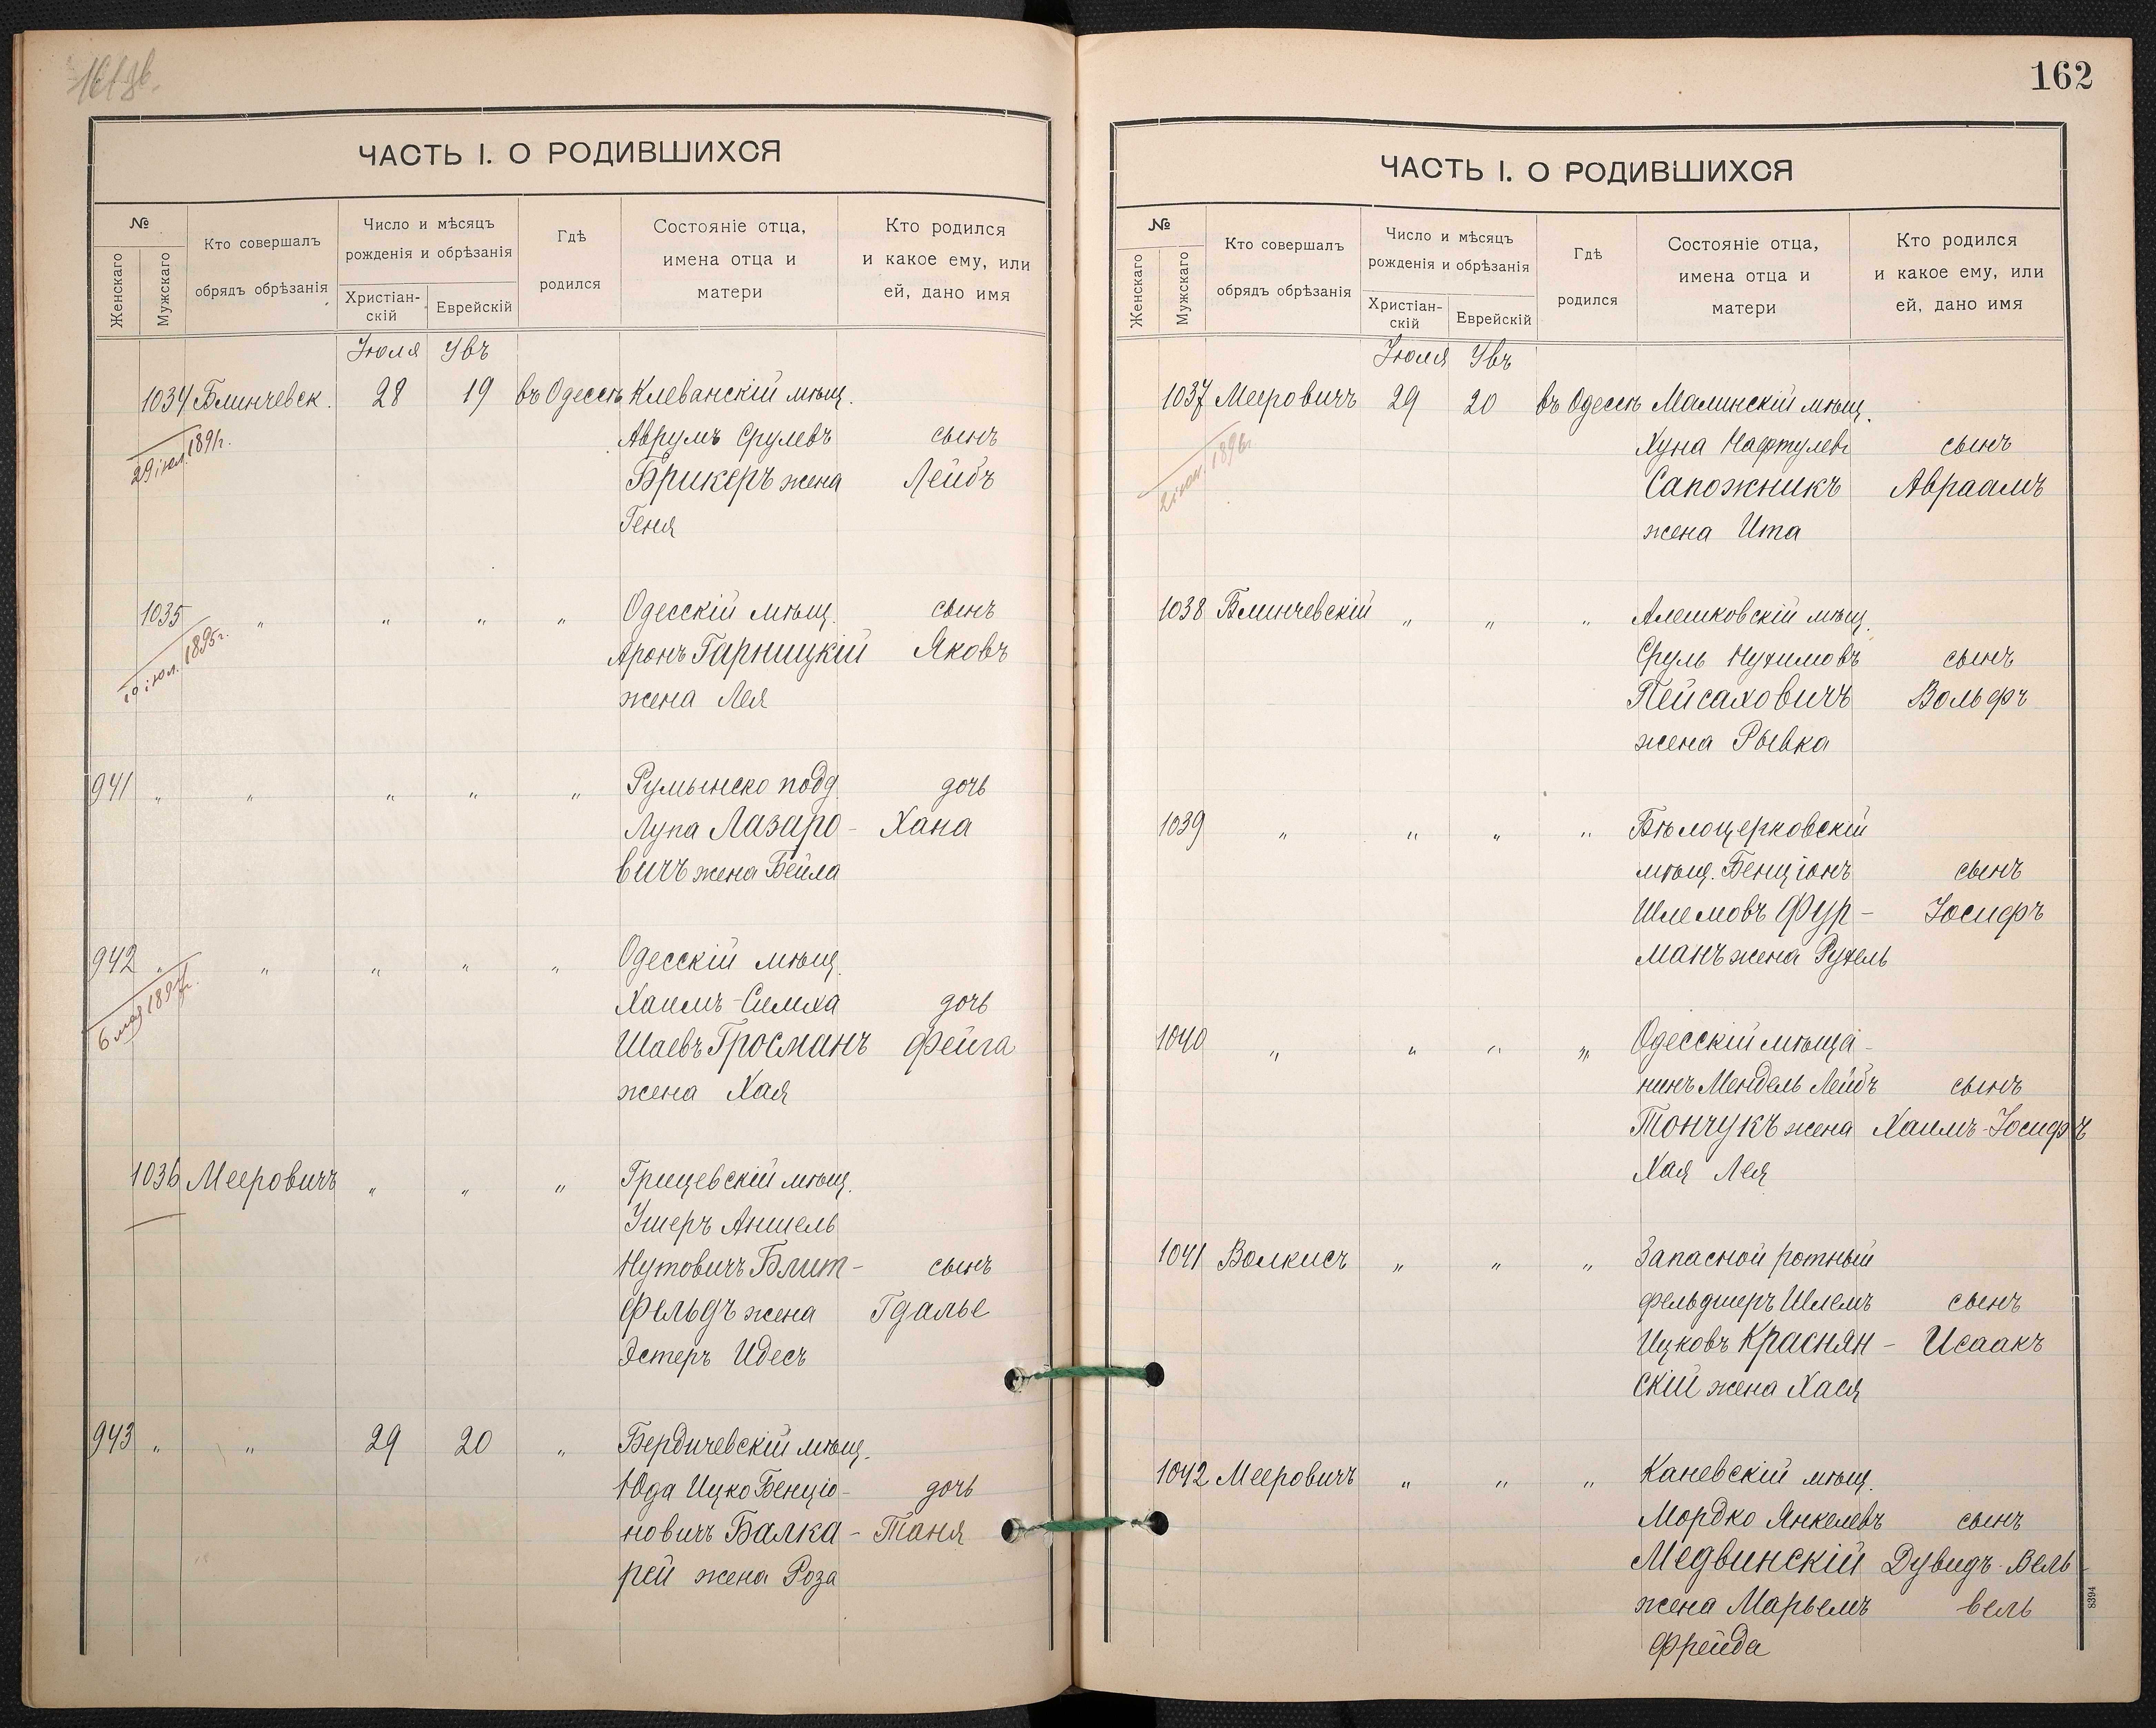 161 об.
ЧАСТЬ I. О РОДИВШИХСЯ
№
Женскаго
Мужскаго
Кто совершалъ
обрядъ обрѣзанія
Число и мѣсяцъ
рожденія и обрѣзанія
Христіан-
скій
Еврейскій
Гдѣ
родился
Состояніе отца,
имена отца и
матери
Кто родился
и какое ему, или
ей, дано имя
Іюля Увъ
1034 Блинчевск. 28 19 въ Одессѣ Клеванскій мѣщ.
Аврумъ Срулевъ сынъ
Брикеръ жена Лейбъ
Геня
1035 " " " " Одесскій мѣщ. сынъ
Аронъ Гарницкій Яковъ
жена Лея
941 " " " " " Румынско подд. дочь
Лупа Лазаро- Хана
вичъ жена Бейла
942 " " " " " Одесскій мѣщ.
Хаимъ-Симха дочь
Шаевъ Гросманъ Фейга
6 мая
жена Хая
1036 Мееровичъ " " " Грицевскій мѣщ.
Ушеръ Аншель
Нутовичъ Блит- сынъ
фельдъ жена Гдалье
Эстеръ Идесъ
943 " " 29 20 " Бердичевскій мѣщ.
Юда Ицко Бенціо- дочь
новичъ Балка- Таня
рей жена Роза
162
ЧАСТЬ I. О РОДИВШИХСЯ
№
Женскаго
Мужскаго
Кто совершалъ
обрядъ обрѣзанія
Число и мѣсяцъ
рожденія и обрѣзанія
Христіан-
скій
Еврейскій
Гдѣ
родился
Состояніе отца,
имена отца и
матери
Кто родился
и какое ему, или
ей, дано имя
Іюля Увъ
1037 Мееровичъ 29 20 въ Одессѣ Малинскій мѣщ.
Хуна Нафтулевъ сынъ
Сапожникъ Авраамъ
жена Ита
1038 Блинчевскій " " " Алешковскій мѣщ.
Сруль Нухимовъ сынъ
Пейсаховичъ Вольфъ
жена Рывка
1039 " " " " Бѣлоцерковскій
мѣщ. Бенціонъ сынъ
Шлемовъ Фур- Іосифъ
манъ жена Рухель
1040 " " " " Одесскій мѣща-
нинъ Мендель Лейбъ сынъ
Тончукъ жена Хаимъ-Іосифъ
Хая Лея
1041 Волкисъ " " " Запасной ротный
фельдшеръ Шлемъ сынъ
Ицковъ Краснян- Исаакъ
скій жена Хася
1042 Мееровичъ " " " Каневскій мѣщ.
Мордко Янкелевъ сынъ
Медвинскій Дувидъ-Вель-
жена Марьемъ вель
Фрейда
8394